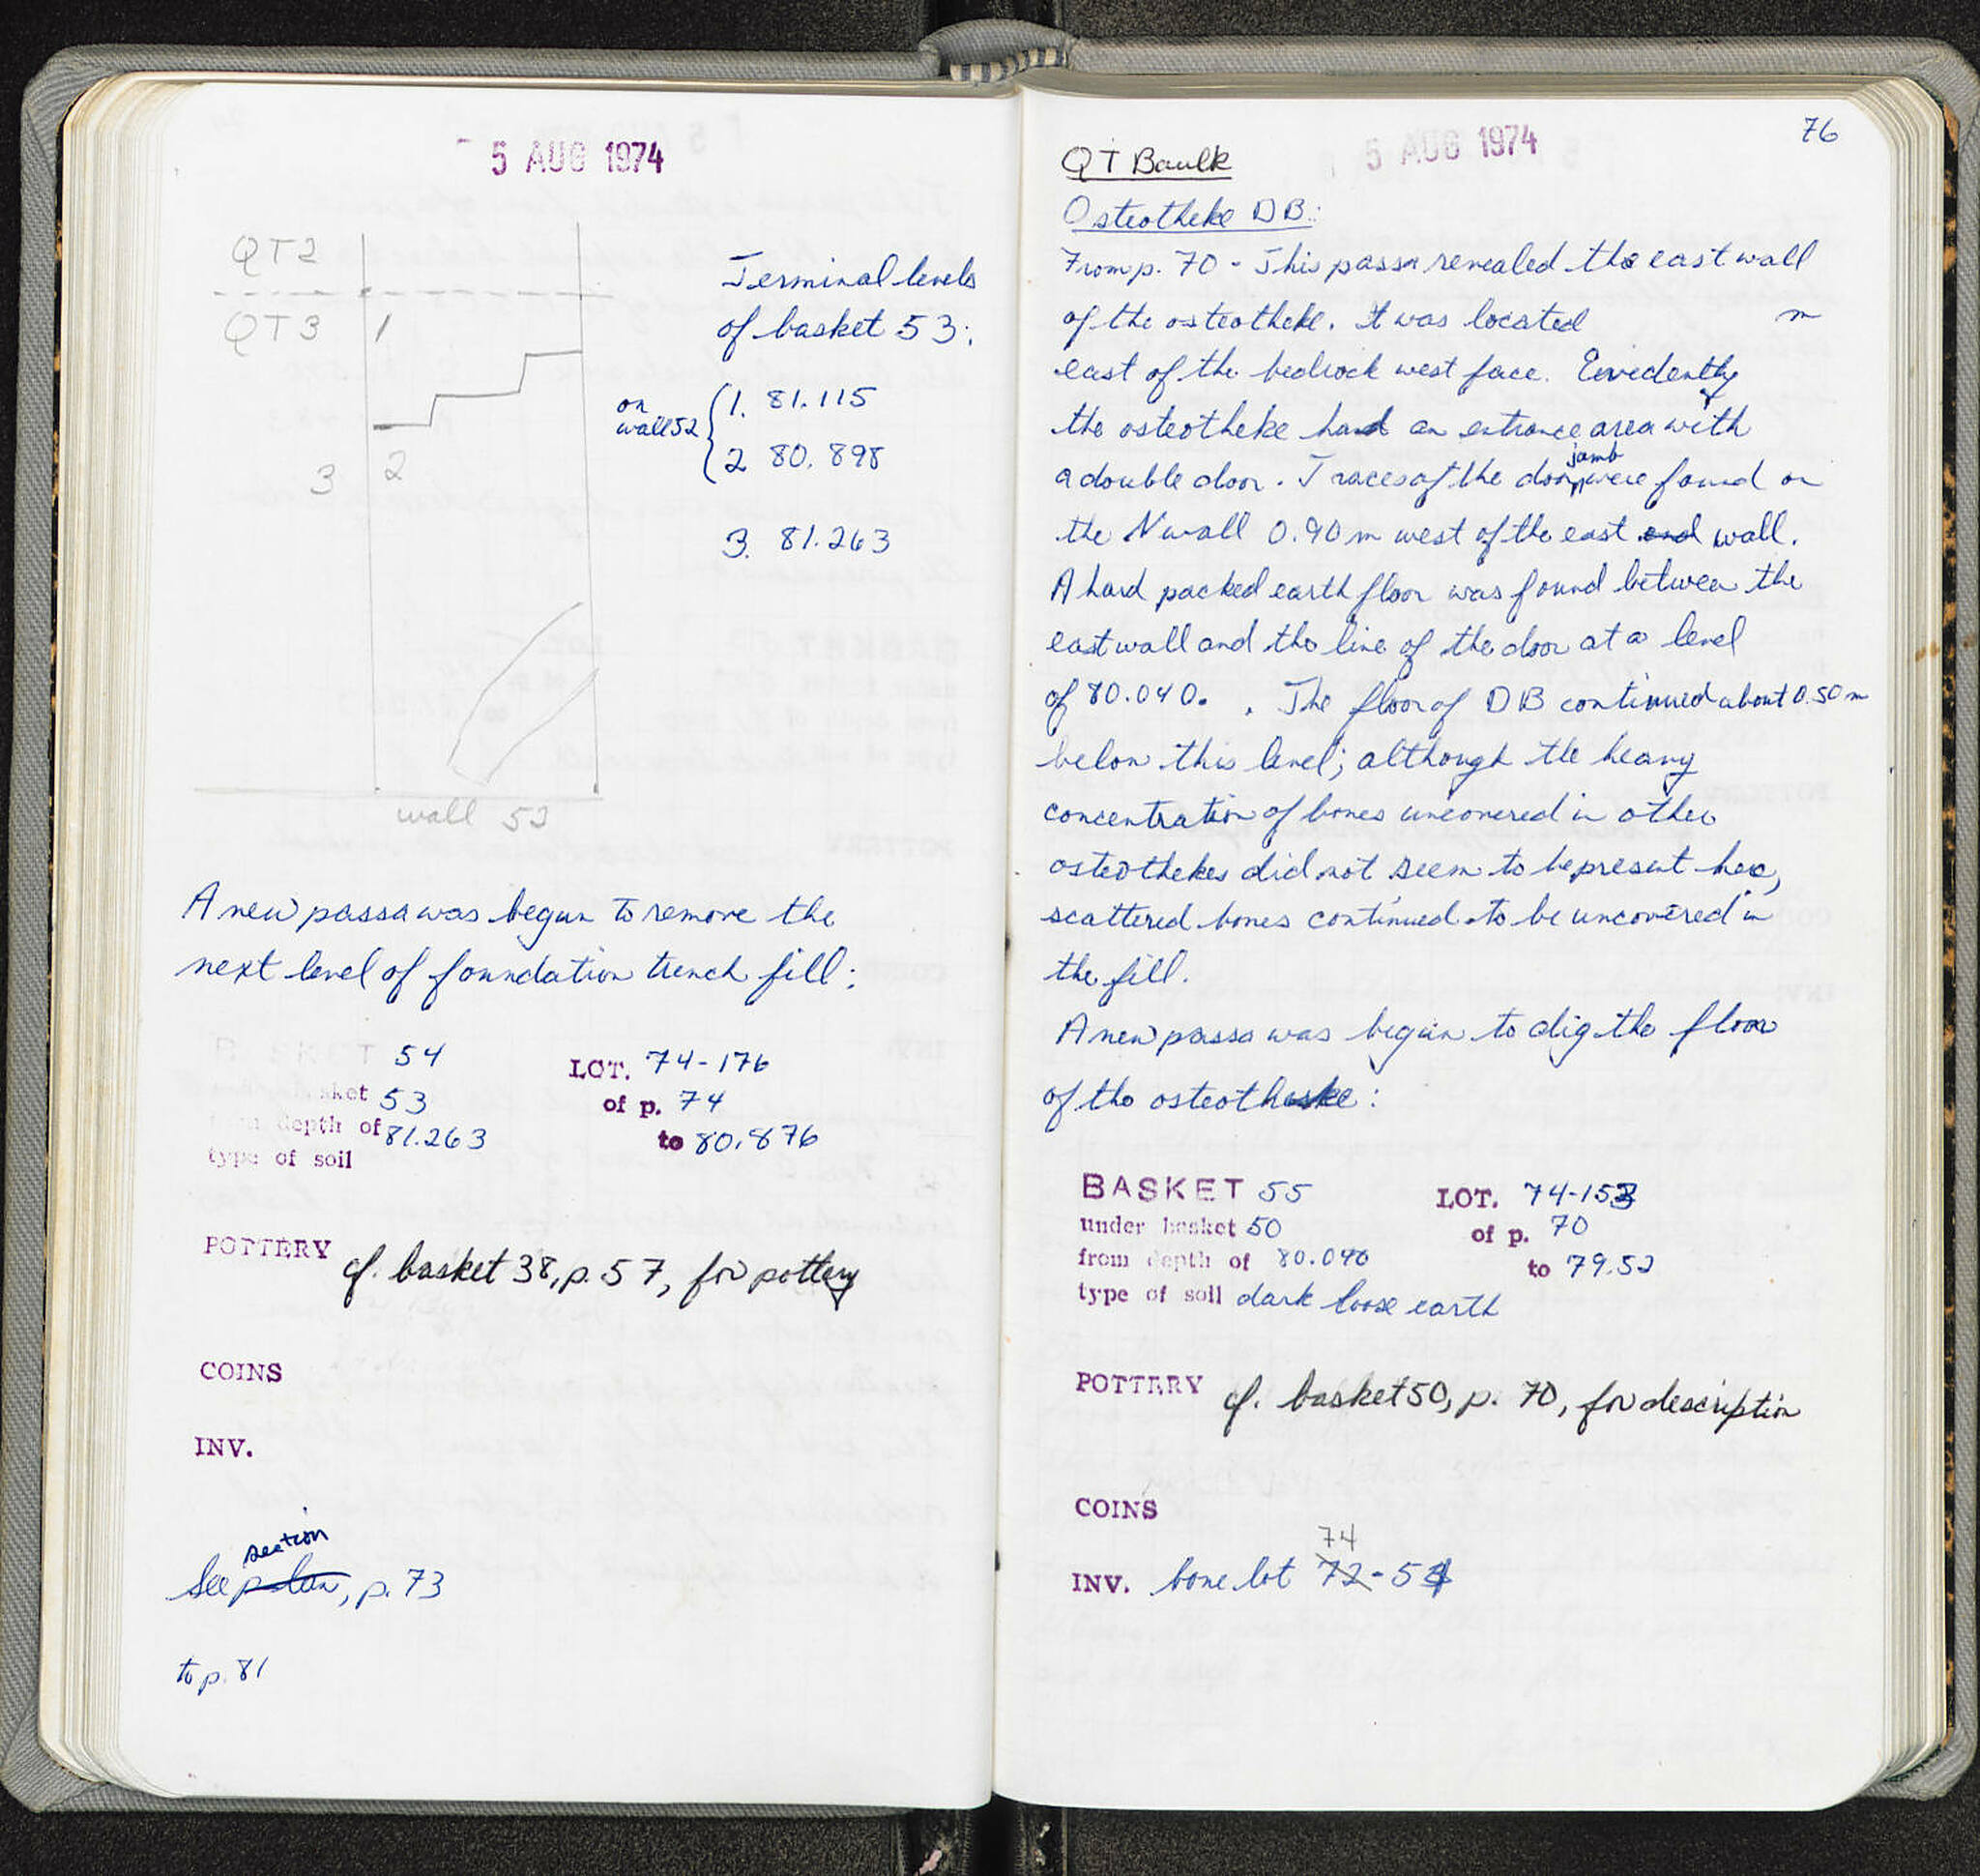 5 AUG 1974
QT2
QT3
1
3 2
wall 52
Terminal levels
of basket 53:
on
wall 52
1. 81.115
2 80.898
3. 81.263
A new passa was begun to remove the
next level of foundation trench fill:
BASKET 54 LOT. 74-176
basket 53 of p. 74
from depth of 81.263 to 80.876
type of soil
POTTERY cf. basket 38, p. 57, for pottery
COINS
INV.
section
See plan, p. 73
to p. 81
76
5 AUG 1974
QT Baulk
Osteotheke DB:
From p. 70 - This passa revealed the east wall
of the osteotheke. It was located m
east of the bedrock west face. Evidently
the osteotheke had an entrance area with
jamb
a double door. Traces of the door were found on
the N wall 0.90 m west of the east end wall.
A hard packed earth floor was found between the
east wall and the line of the door at a level
of 80.040. . The floor of DB continued about 0.50 m
below this level; although the heavy
concentration of bones uncovered in other
osteothekes did not seem to be present here,
scattered bones continued to be uncovered in
the fill.
A new passa was begun to dig the floor
of the osteotheke:
BASKET 55 LOT. 74-153
under basket 50 of p. 70
from depth of 80.040 to 79.52
type of soil dark loose earth
POTTERY cf. basket 50, p. 70, for description
COINS
74
INV. bone lot 72-54